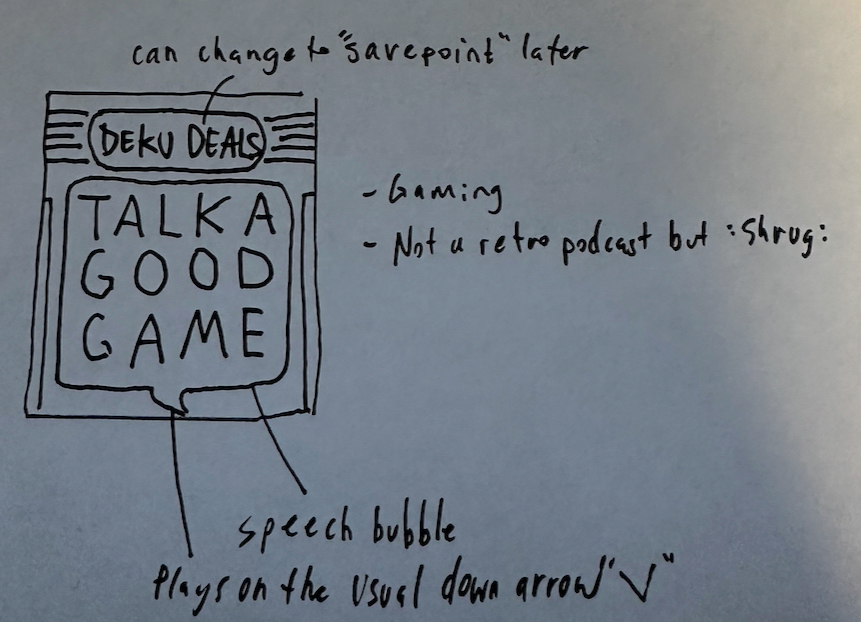 can change to "savepoint" later
DEKU DEALS
TALK A
GOOD
GAME
- Gaming
- Not a retro podcast but :shrug:
speech bubble
Plays on the usual down arrow "V"